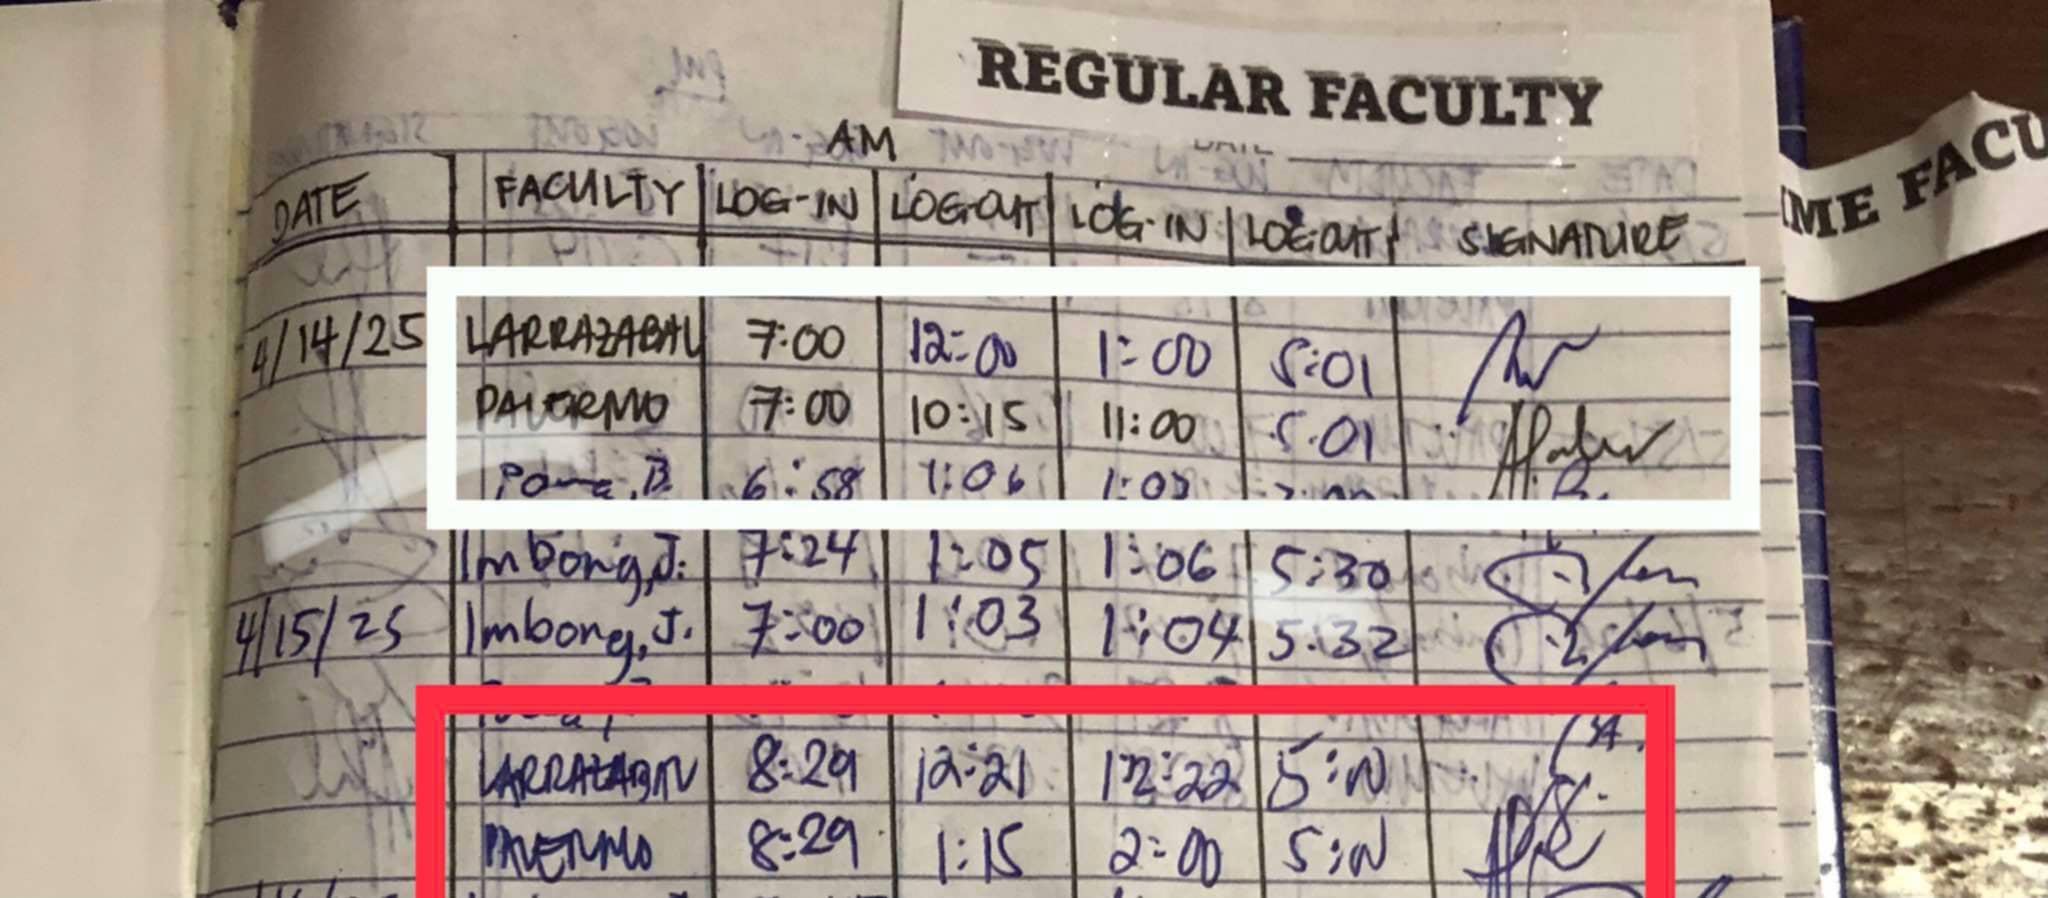 REGULAR FACULTY
IME FACU
AM
DATE FACULTY LOG-IN LOG-OUT LOG-IN LOG-OUT SIGNATURE
4/14/25 LARRAZABAL 7:00 12:00 1:00 5:01
PALERMO 7:00 10:15 11:00 5:01
6:58 1:06
Imbong, J. 7:24 1:05 1:06 5:30
4/15/25 Imbong, J. 7:00 1:03 1:04 5:32
LARRAZABAL 8:29 12:21 12:22
PALERMO 8:29 1:15 2:00